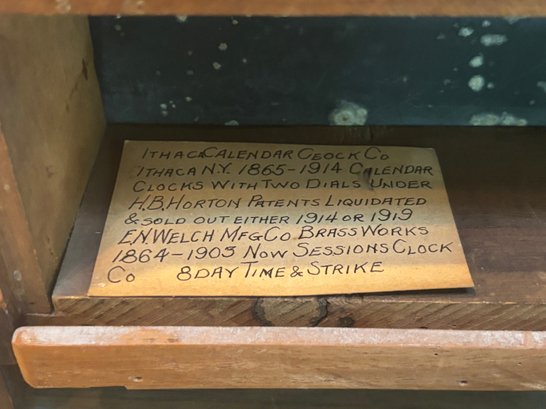 ITHACA CALENDAR CLOCK CO
ITHACA N.Y. 1865-1914 CALENDAR
CLOCKS WITH TWO DIALS UNDER
H.B. HORTON PATENTS LIQUIDATED
& SOLD OUT EITHER 1914 OR 1919
E.N. WELCH MFG CO BRASS WORKS
1864-1903 NOW SESSIONS CLOCK
CO 8 DAY TIME & STRIKE